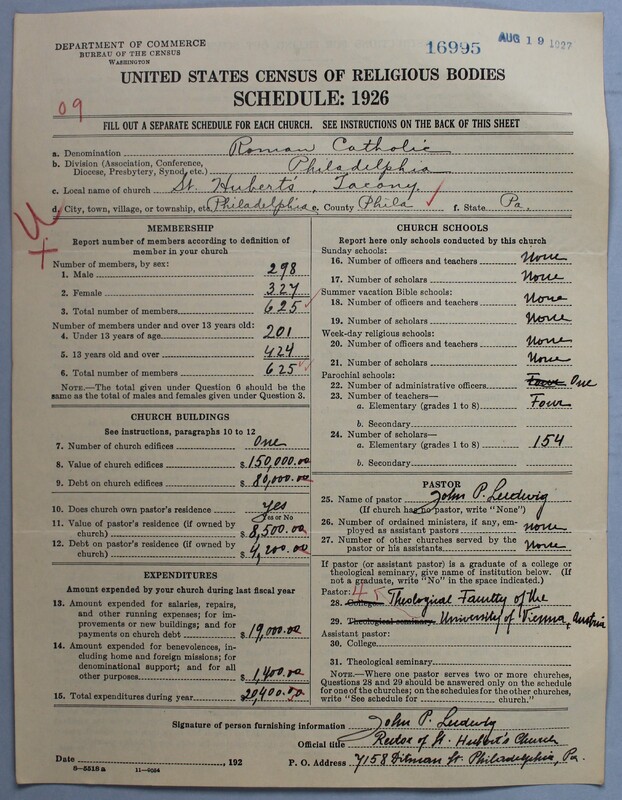 DEPARTMENT OF COMMERCE
BUREAU OF THE CENSUS
WASHINGTON
16995
AUG 19 1927
UNITED STATES CENSUS OF RELIGIOUS BODIES
SCHEDULE: 1926
09
FILL OUT A SEPARATE SCHEDULE FOR EACH CHURCH. SEE INSTRUCTIONS ON THE BACK OF THIS SHEET
a. Denomination Roman Catholic
b. Division (Association, Conference, Diocese, Presbytery, Synod, etc.) Philadelphia
c. Local name of church St. Hubert's, Tacony
d. City, town, village, or township, etc. Philadelphia e. County Phila f. State Pa.
MEMBERSHIP
Report number of members according to definition of
member in your church
Number of members, by sex:
1. Male 298
2. Female 327
3. Total number of members 625
Number of members under and over 13 years old:
4. Under 13 years of age 201
5. 13 years old and over 424
6. Total number of members 625
NOTE.—The total given under Question 6 should be the
same as the total of males and females given under Question 3.
CHURCH BUILDINGS
See instructions, paragraphs 10 to 12
7. Number of church edifices One
8. Value of church edifices $150,000.00
9. Debt on church edifices $80,000.00
10. Does church own pastor's residence yes
Yes or No
11. Value of pastor's residence (if owned by
church) $8,500.00
12. Debt on pastor's residence (if owned by
church) $4,200.00
EXPENDITURES
Amount expended by your church during last fiscal year
13. Amount expended for salaries, repairs,
and other running expenses; for im-
provements or new buildings; and for
payments on church debt $19,000.00
14. Amount expended for benevolences, in-
cluding home and foreign missions; for
denominational support; and for all
other purposes $1,400.00
15. Total expenditures during year $20,400.00
CHURCH SCHOOLS
Report here only schools conducted by this church
Sunday schools:
16. Number of officers and teachers None
17. Number of scholars None
Summer vacation Bible schools:
18. Number of officers and teachers None
19. Number of scholars None
Week-day religious schools:
20. Number of officers and teachers None
21. Number of scholars None
Parochial schools:
22. Number of administrative officers Four One
23. Number of teachers—
a. Elementary (grades 1 to 8) Four
b. Secondary
24. Number of scholars—
a. Elementary (grades 1 to 8) 154
b. Secondary
PASTOR
25. Name of pastor John P. Ludwig
(If church has no pastor, write "None")
26. Number of ordained ministers, if any, em-
ployed as assistant pastors none
27. Number of other churches served by the
pastor or his assistants None
If pastor (or assistant pastor) is a graduate of a college or
theological seminary, give name of institution below. (If
not a graduate, write "No" in the space indicated.)
Pastor:
28. College Theological Faculty of the
29. Theological seminary University of Vienna, Austria
Assistant pastor:
30. College
31. Theological seminary
NOTE.—Where one pastor serves two or more churches,
Questions 28 and 29 should be answered only on the schedule
for one of the churches; on the schedules for the other churches,
write "See schedule for church."
Signature of person furnishing information John P. Ludwig
Official title Rector of St. Hubert's Church
Date , 192 P. O. Address 7158 Ditman St. Philadelphia, Pa.
8—5518 a 11—9054